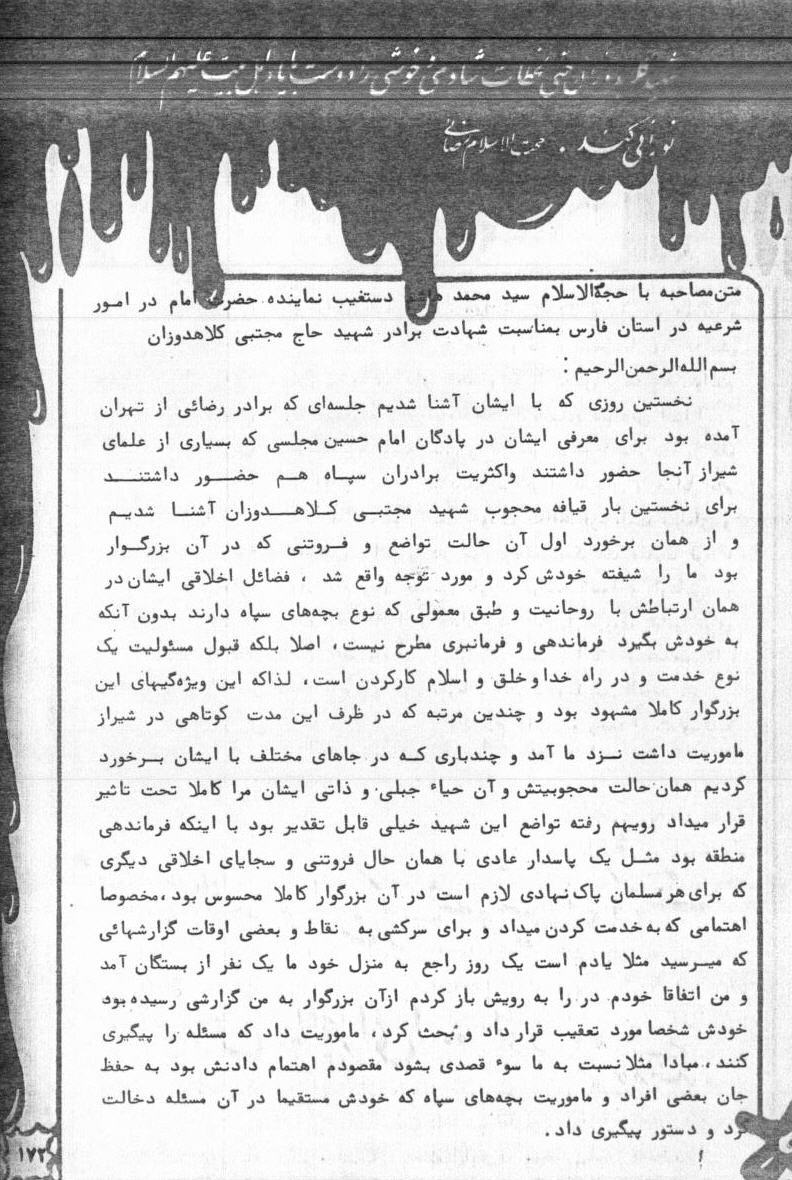 لحظات شادمنی خوشی را دوست با یاد اهل بیت علیهم السلام
نورانی کند . حجت الاسلام
متن مصاحبه با حجةالاسلام سید محمد هاشم دستغیب نماینده حضرت امام در امور
شرعیه در استان فارس بمناسبت شهادت برادر شهید حاج مجتبی کلاهدوزان
بسم‌الله‌الرحمن‌الرحیم :
نخستین روزی که با ایشان آشنا شدیم جلسه‌ای که برادر رضائی از تهران
آمده بود برای معرفی ایشان در پادگان امام حسین مجلسی که بسیاری از علمای
شیراز آنجا حضور داشتند واکثریت برادران سپاه هم حضور داشتند
برای نخستین بار قیافه محجوب شهید مجتبی کلاهدوزان آشنا شدیم
و از همان برخورد اول آن حالت تواضع و فروتنی که در آن بزرگوار
بود ما را شیفته خودش کرد و مورد توجه واقع شد ، فضائل اخلاقی ایشان در
همان ارتباطش با روحانیت و طبق معمولی که نوع بچه‌های سپاه دارند بدون آنکه
به خودش بگیرد فرماندهی و فرمانبری مطرح نیست، اصلا بلکه قبول مسئولیت یک
نوع خدمت و در راه خدا و خلق و اسلام کارکردن است، لذاکه این ویژه‌گیهای این
بزرگوار کاملا مشهود بود و چندین مرتبه که در ظرف این مدت کوتاهی در شیراز
ماموریت داشت نزد ما آمد و چندباری که در جاهای مختلف با ایشان برخورد
کردیم همان حالت محجوبیتش و آن حیاء جبلی و ذاتی ایشان مرا کاملا تحت تاثیر
قرار میداد رویهم رفته تواضع این شهید خیلی قابل تقدیر بود با اینکه فرماندهی
منطقه بود مثل یک پاسدار عادی با همان حال فروتنی و سجایای اخلاقی دیگری
که برای هر مسلمان پاک نهادی لازم است در آن بزرگوار کاملا محسوس بود، مخصوصا
اهتمامی که به خدمت کردن میداد و برای سرکشی به نقاط و بعضی اوقات گزارشهائی
که میرسید مثلا یادم است یک روز راجع به منزل خود ما یک نفر از بستگان آمد
و من اتفاقا خودم در را به رویش باز کردم ازآن بزرگوار به من گزارشی رسیده بود
خودش شخصا مورد تعقیب قرار داد و بحث کرد، ماموریت داد که مسئله را پیگیری
کنند، مبادا مثلا نسبت به ما سوء قصدی بشود مقصودم اهتمام دادنش بود به حفظ
جان بعضی افراد و ماموریت بچه‌های سپاه که خودش مستقیما در آن مسئله دخالت
کرد و دستور پیگیری داد.
۱۷۳